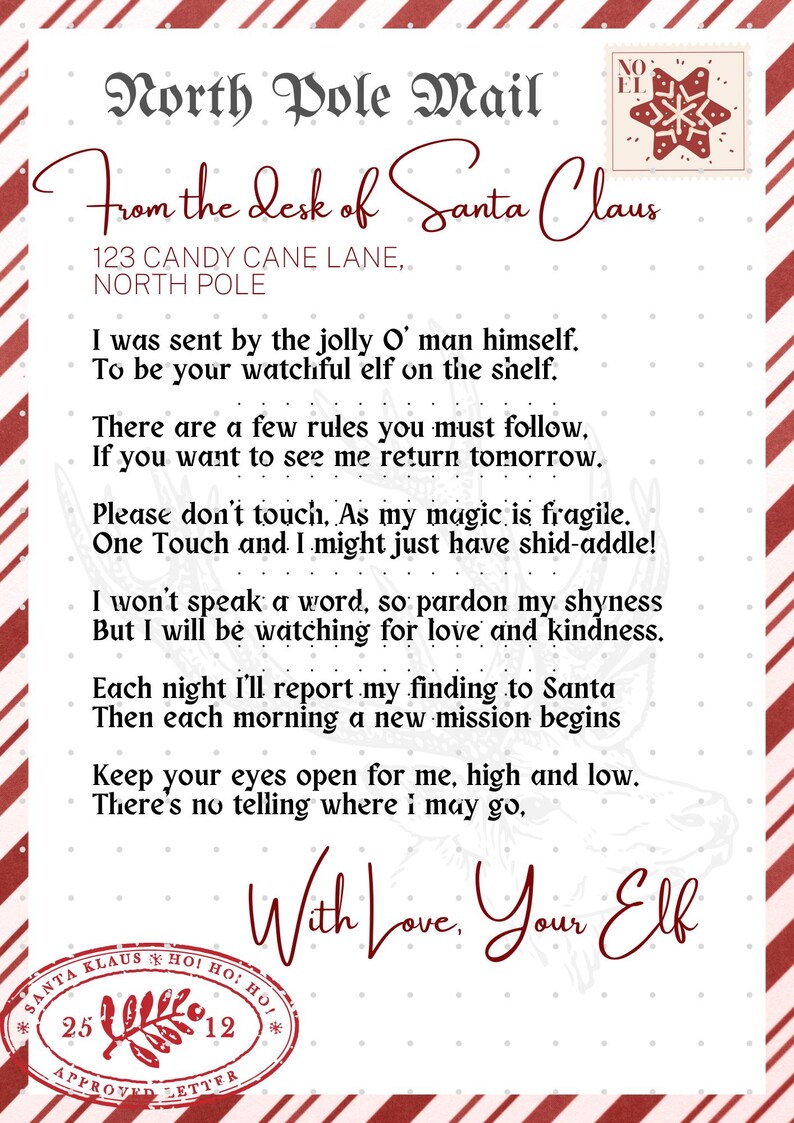 North Pole Mail
NO
EL
From the desk of Santa Claus
123 CANDY CANE LANE,
NORTH POLE
I was sent by the jolly O' man himself.
To be your watchful elf on the shelf.
There are a few rules you must follow,
If you want to see me return tomorrow.
Please don't touch, As my magic is fragile.
One Touch and I might just have shid-addle!
I won't speak a word, so pardon my shyness
But I will be watching for love and kindness.
Each night I'll report my finding to Santa
Then each morning a new mission begins
Keep your eyes open for me, high and low.
There's no telling where I may go,
With Love, Your Elf
SANTA KLAUS * HO! HO! HO! *
25 12
APPROVED LETTER